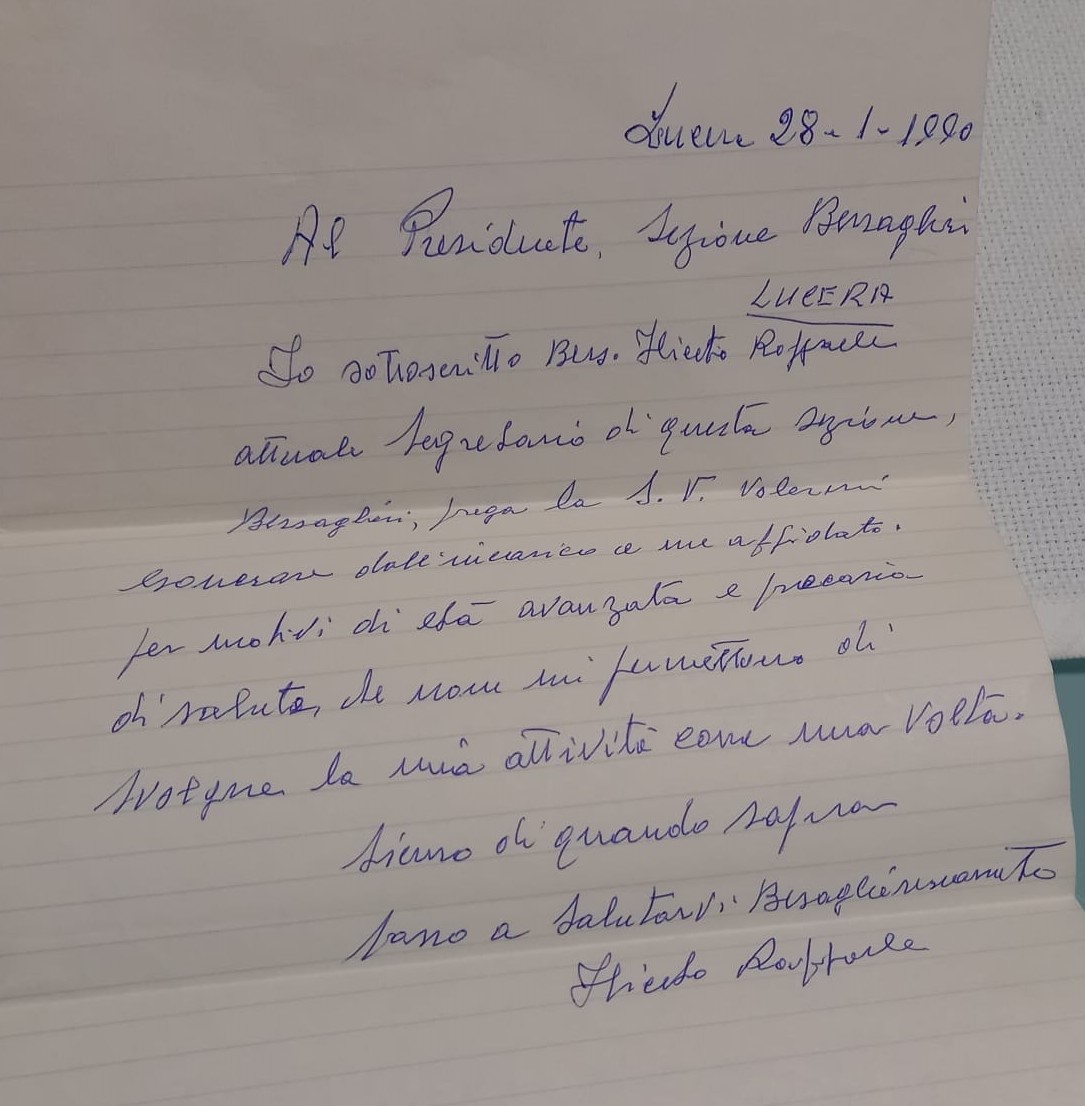 Lucera 28-1-1990
Al Presidente, Sezione Bersaglieri
LUCERA
Io sottoscritto Bers. Raffaele
attuale Segretario di questa sezione,
Bersaglieri, prega la S. V. Volermi
esonerare dall'incarico a me affidato.
per motivi di età avanzata e precaria
di salute, che non mi permettono di
svolgere la mia attività come una volta.
Sicuro di quando sopra
passo a salutarvi Bersaglierescamente
Raffaele